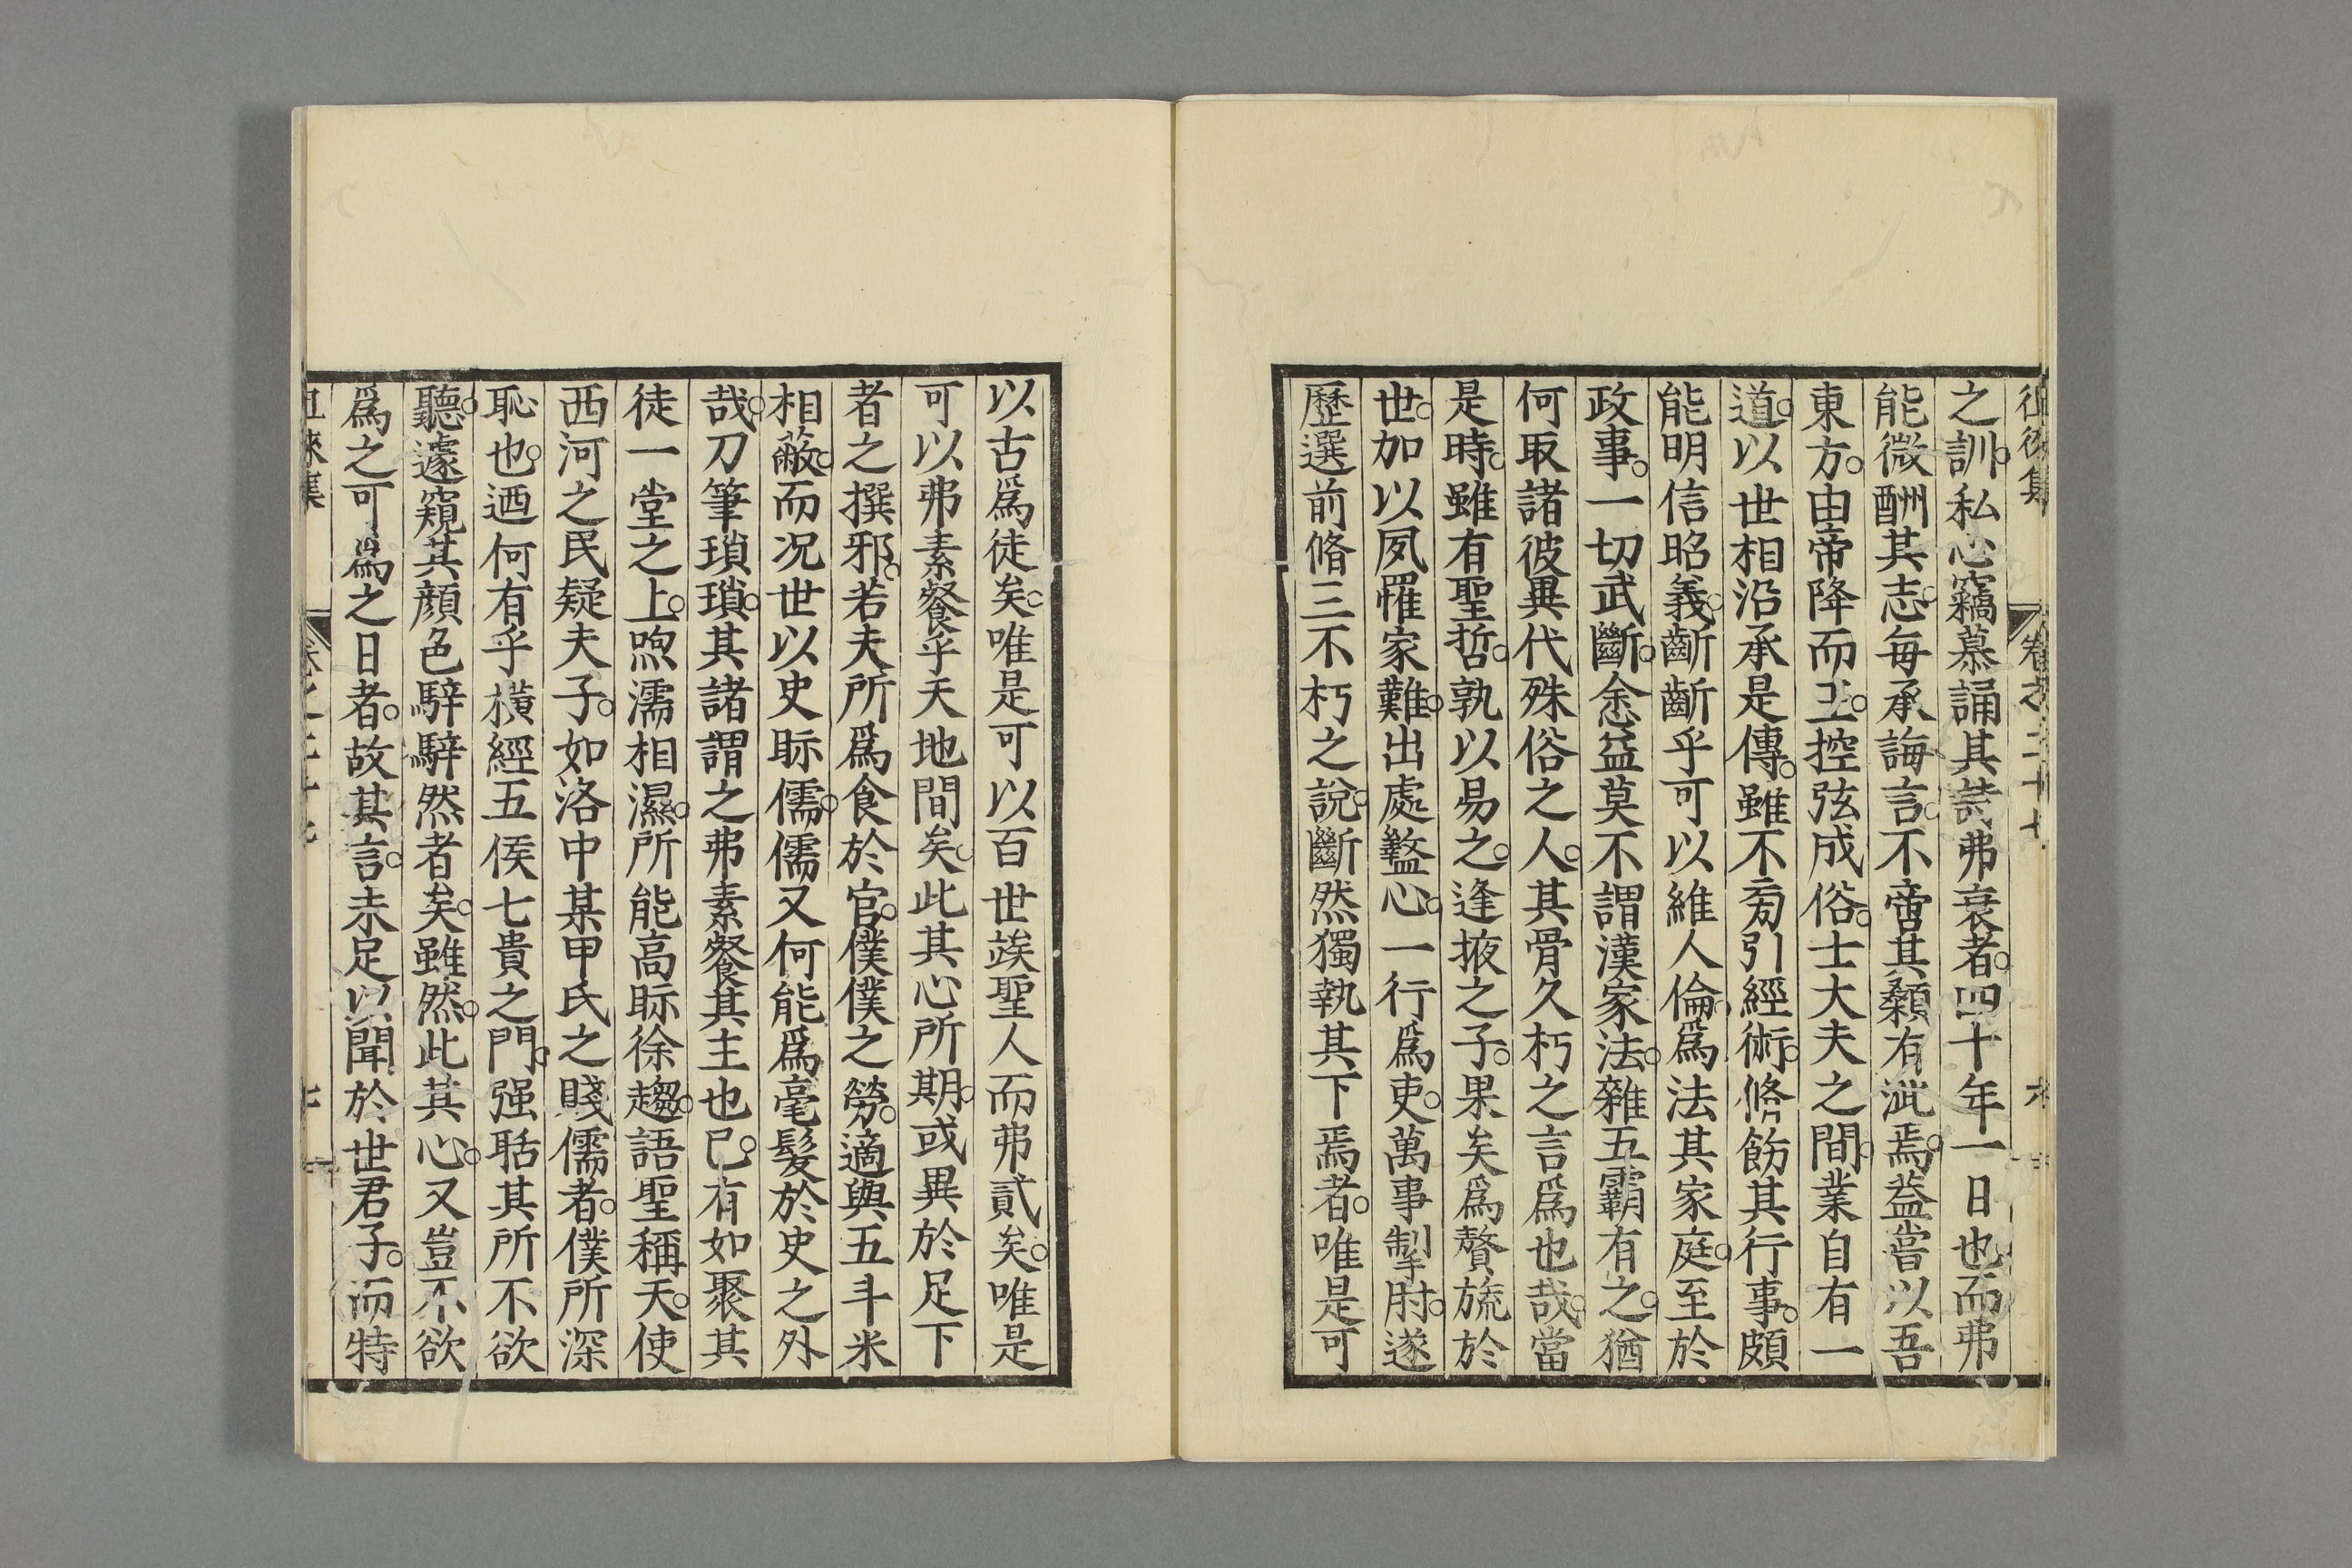 徂徠集 卷之二十七 六
之訓。私心竊慕誦其詩弗衰者。四十年一日也。而弗
能微酬其志。每承誨言。不啻其顙有泚焉。蓋嘗以吾
東方。由帝降而王。控弦成俗。士大夫之間。業自有一
道。以世相沿承是傳。雖不旁引經術。脩飭其行事。頗
能明信昭義。斷斷乎可以維人倫。爲法其家庭。至於
政事。一切武斷。悆益莫不謂漢家法。雜五霸有之。猶
何取諸彼異代殊俗之人。其骨久朽之言爲也哉。當
是時。雖有聖哲。孰以易之。逢掖之子。果矣爲贅旒於
世。加以夙罹家難。出處盭心。一行爲吏。萬事掣肘。遂
歷選前脩三不朽之說。斷然獨執其下焉者。唯是可
以古爲徒矣。唯是可以百世竢聖人而弗貳矣。唯是
可以弗素餐乎天地間矣。此其心所期。或異於足下
者之撰邪。若夫所爲食於官。僕僕之勞。適與五斗米
相蔽。而况世以史眎儒。儒又何能爲毫髮於史之外
哉。刀筆瑣瑣。其諸謂之弗素餐其主也已。有如聚其
徒一堂之上。喣濡相濕。所能高眎徐趨。語聖稱天。使
西河之民疑夫子。如洛中某甲氏之賤儒者。僕所深
恥也。迺何有乎橫經五侯七貴之門。强聒其所不欲
聽。遽窺其顔色騂騂然者矣。雖然。此其心。又豈不欲
爲之可爲之日者。故其言。未足以聞於世君子。而特
徂徠集 卷之二十七 七